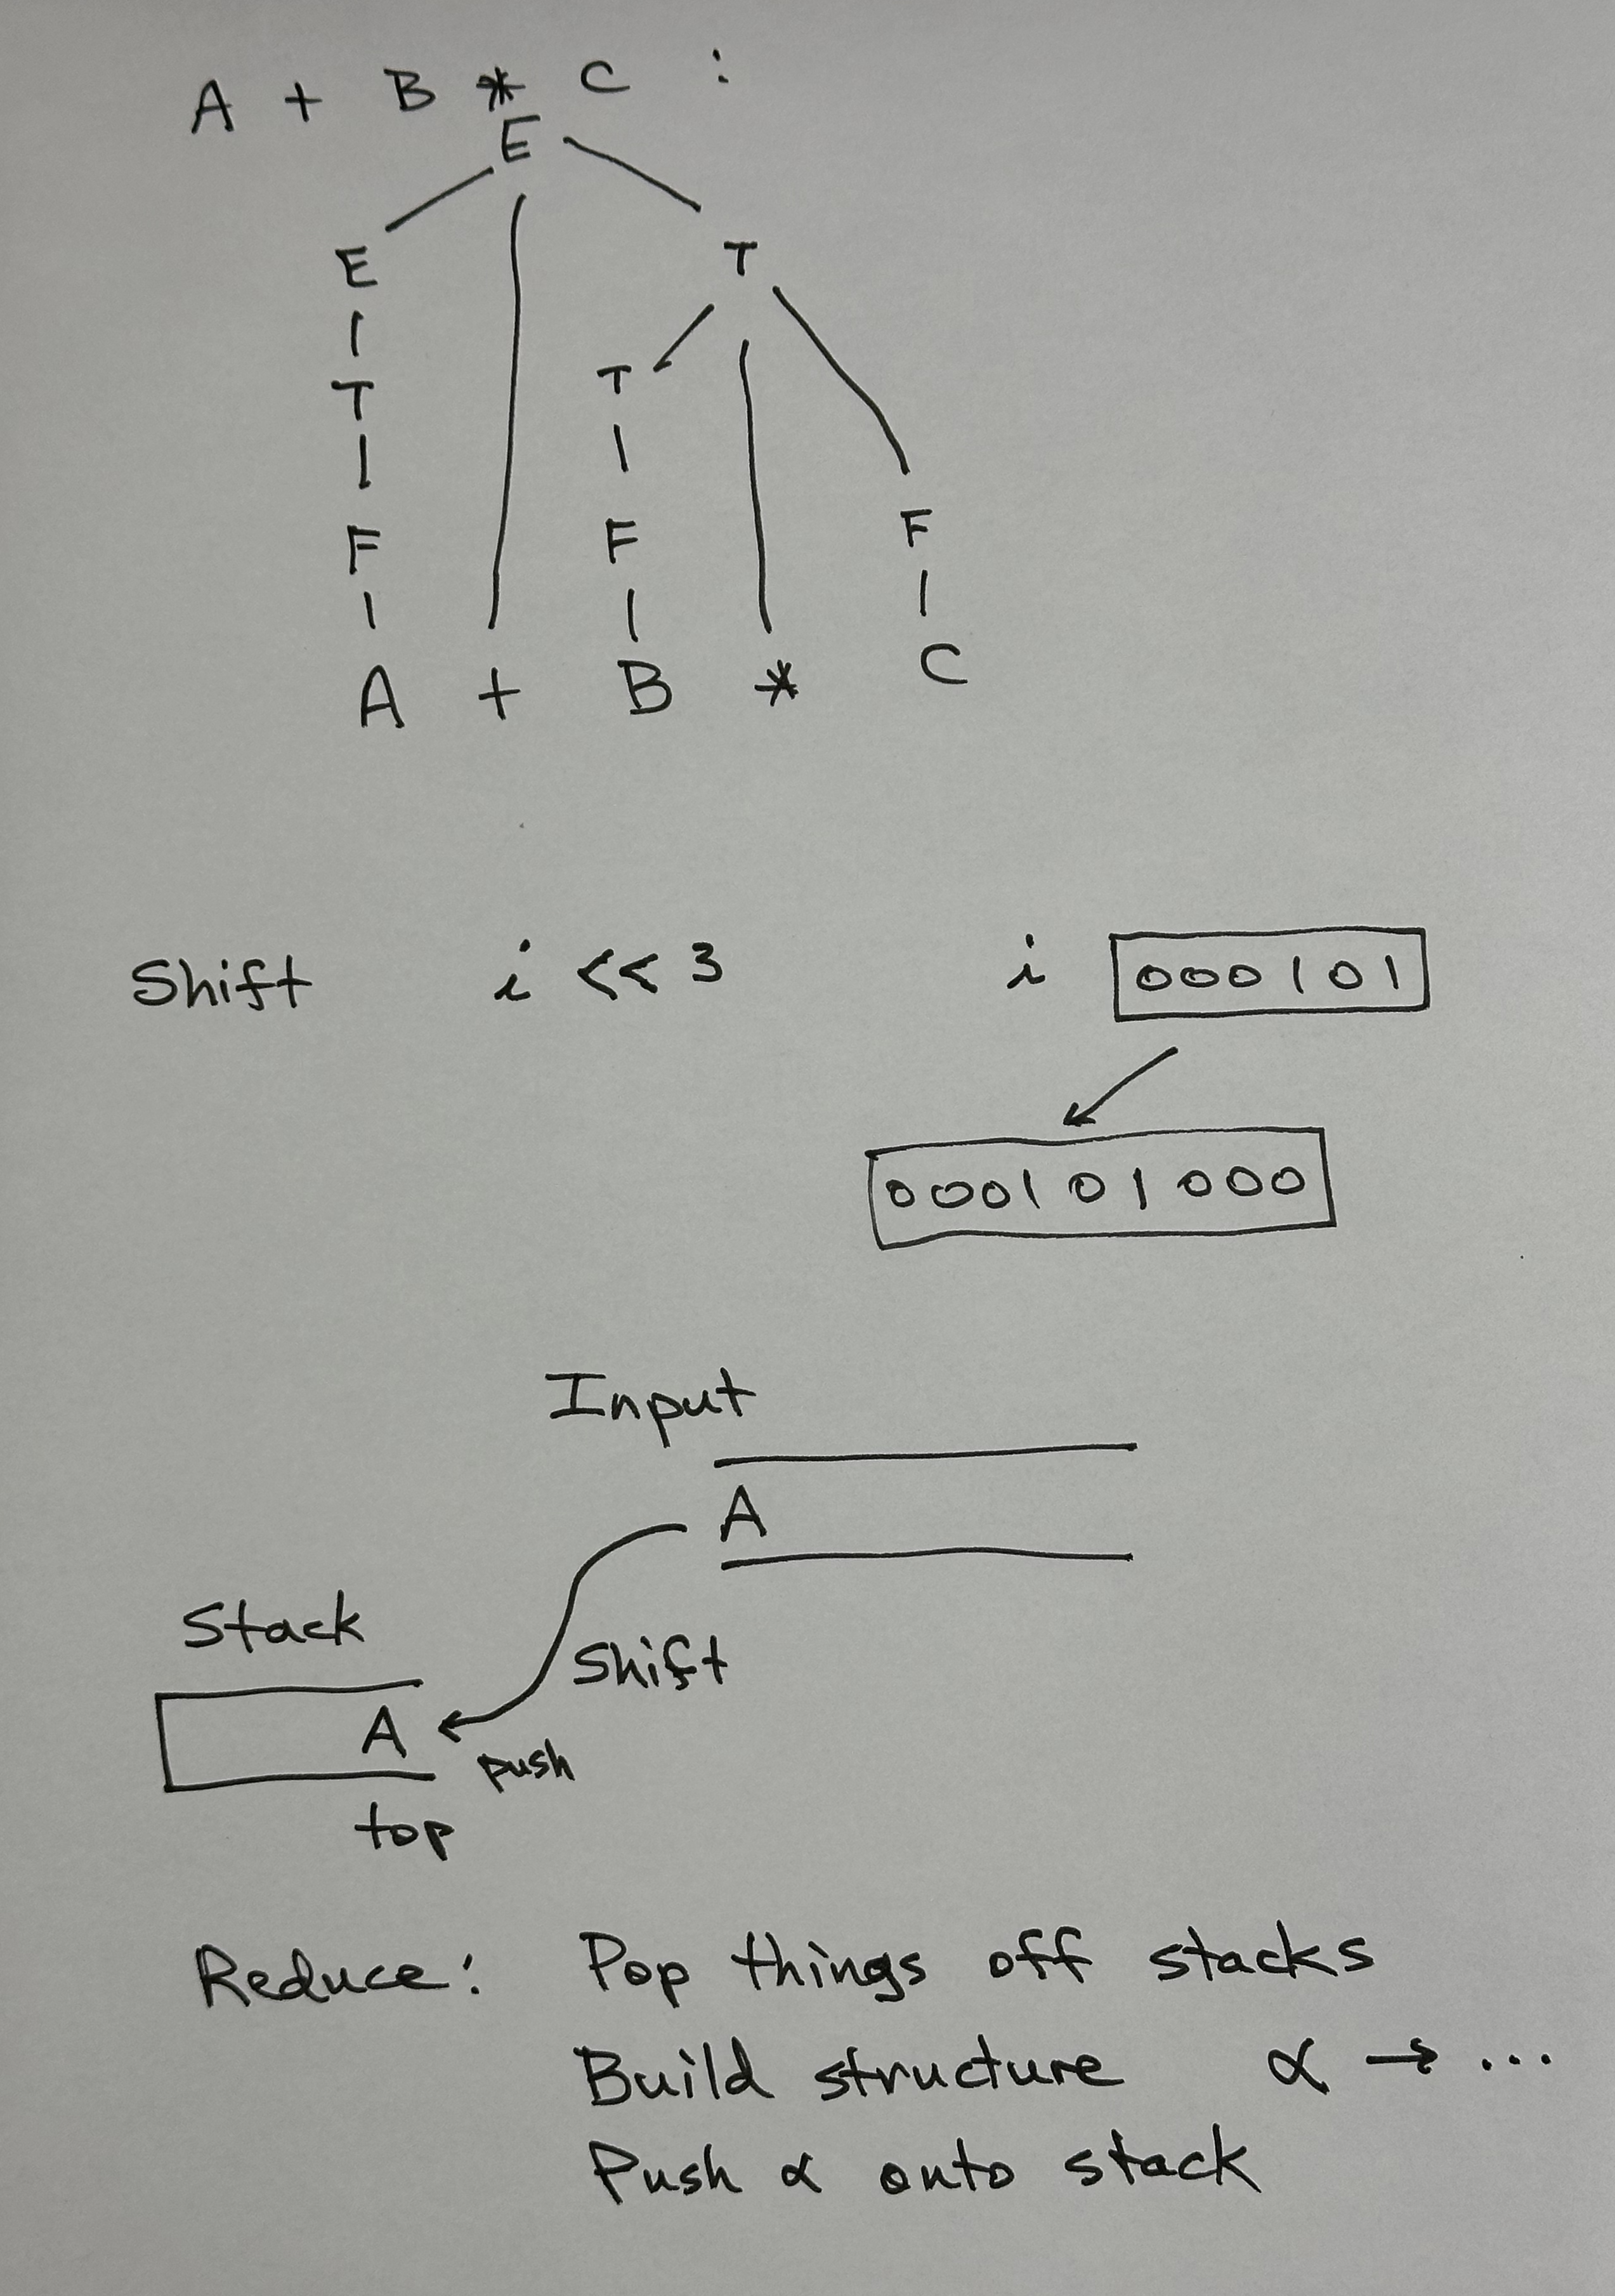 A + B * C :
E
E T
T T
F F F
A + B * C
Shift i << 3 i 000101
000101000
Input
A
Stack
Shift
A
push
top
Reduce: Pop things off stacks
Build structure α → ...
Push α onto stack